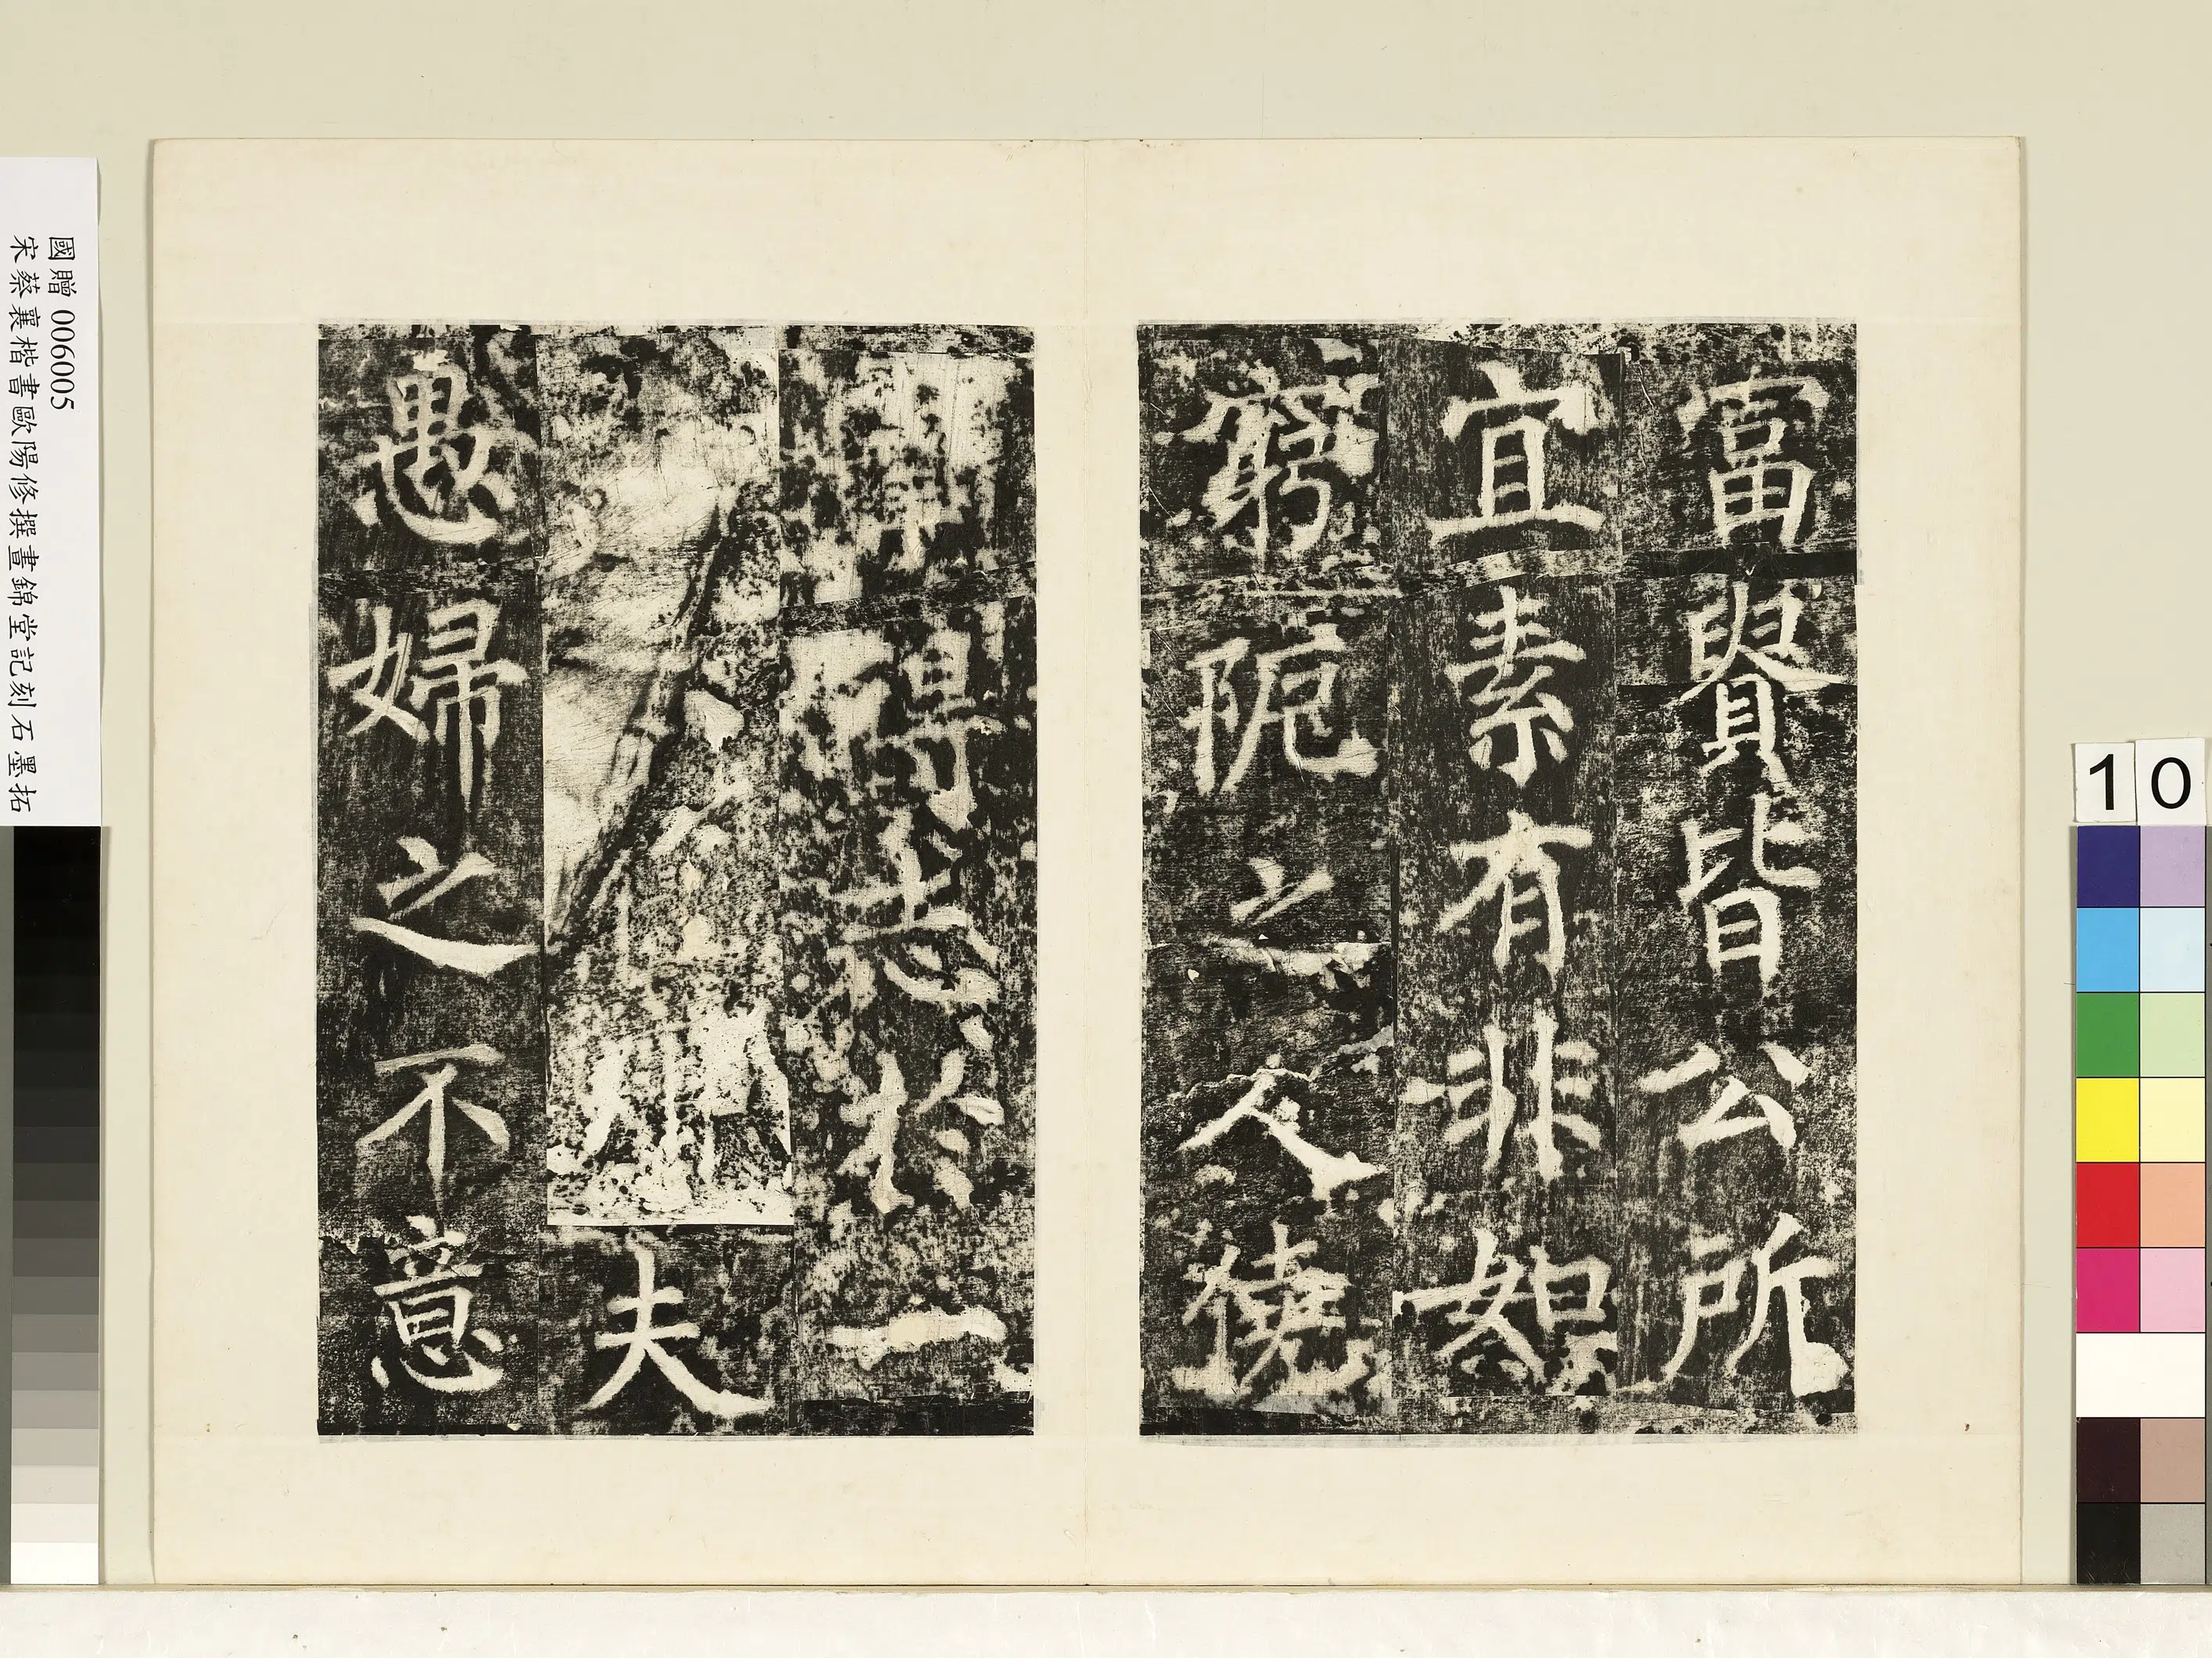 富貴皆公所
宜素有非如
窮阨之人僥
得志於一
夫
愚婦之不意
國贈 006005
宋蔡襄楷書歐陽修撰晝錦堂記刻石墨拓
10